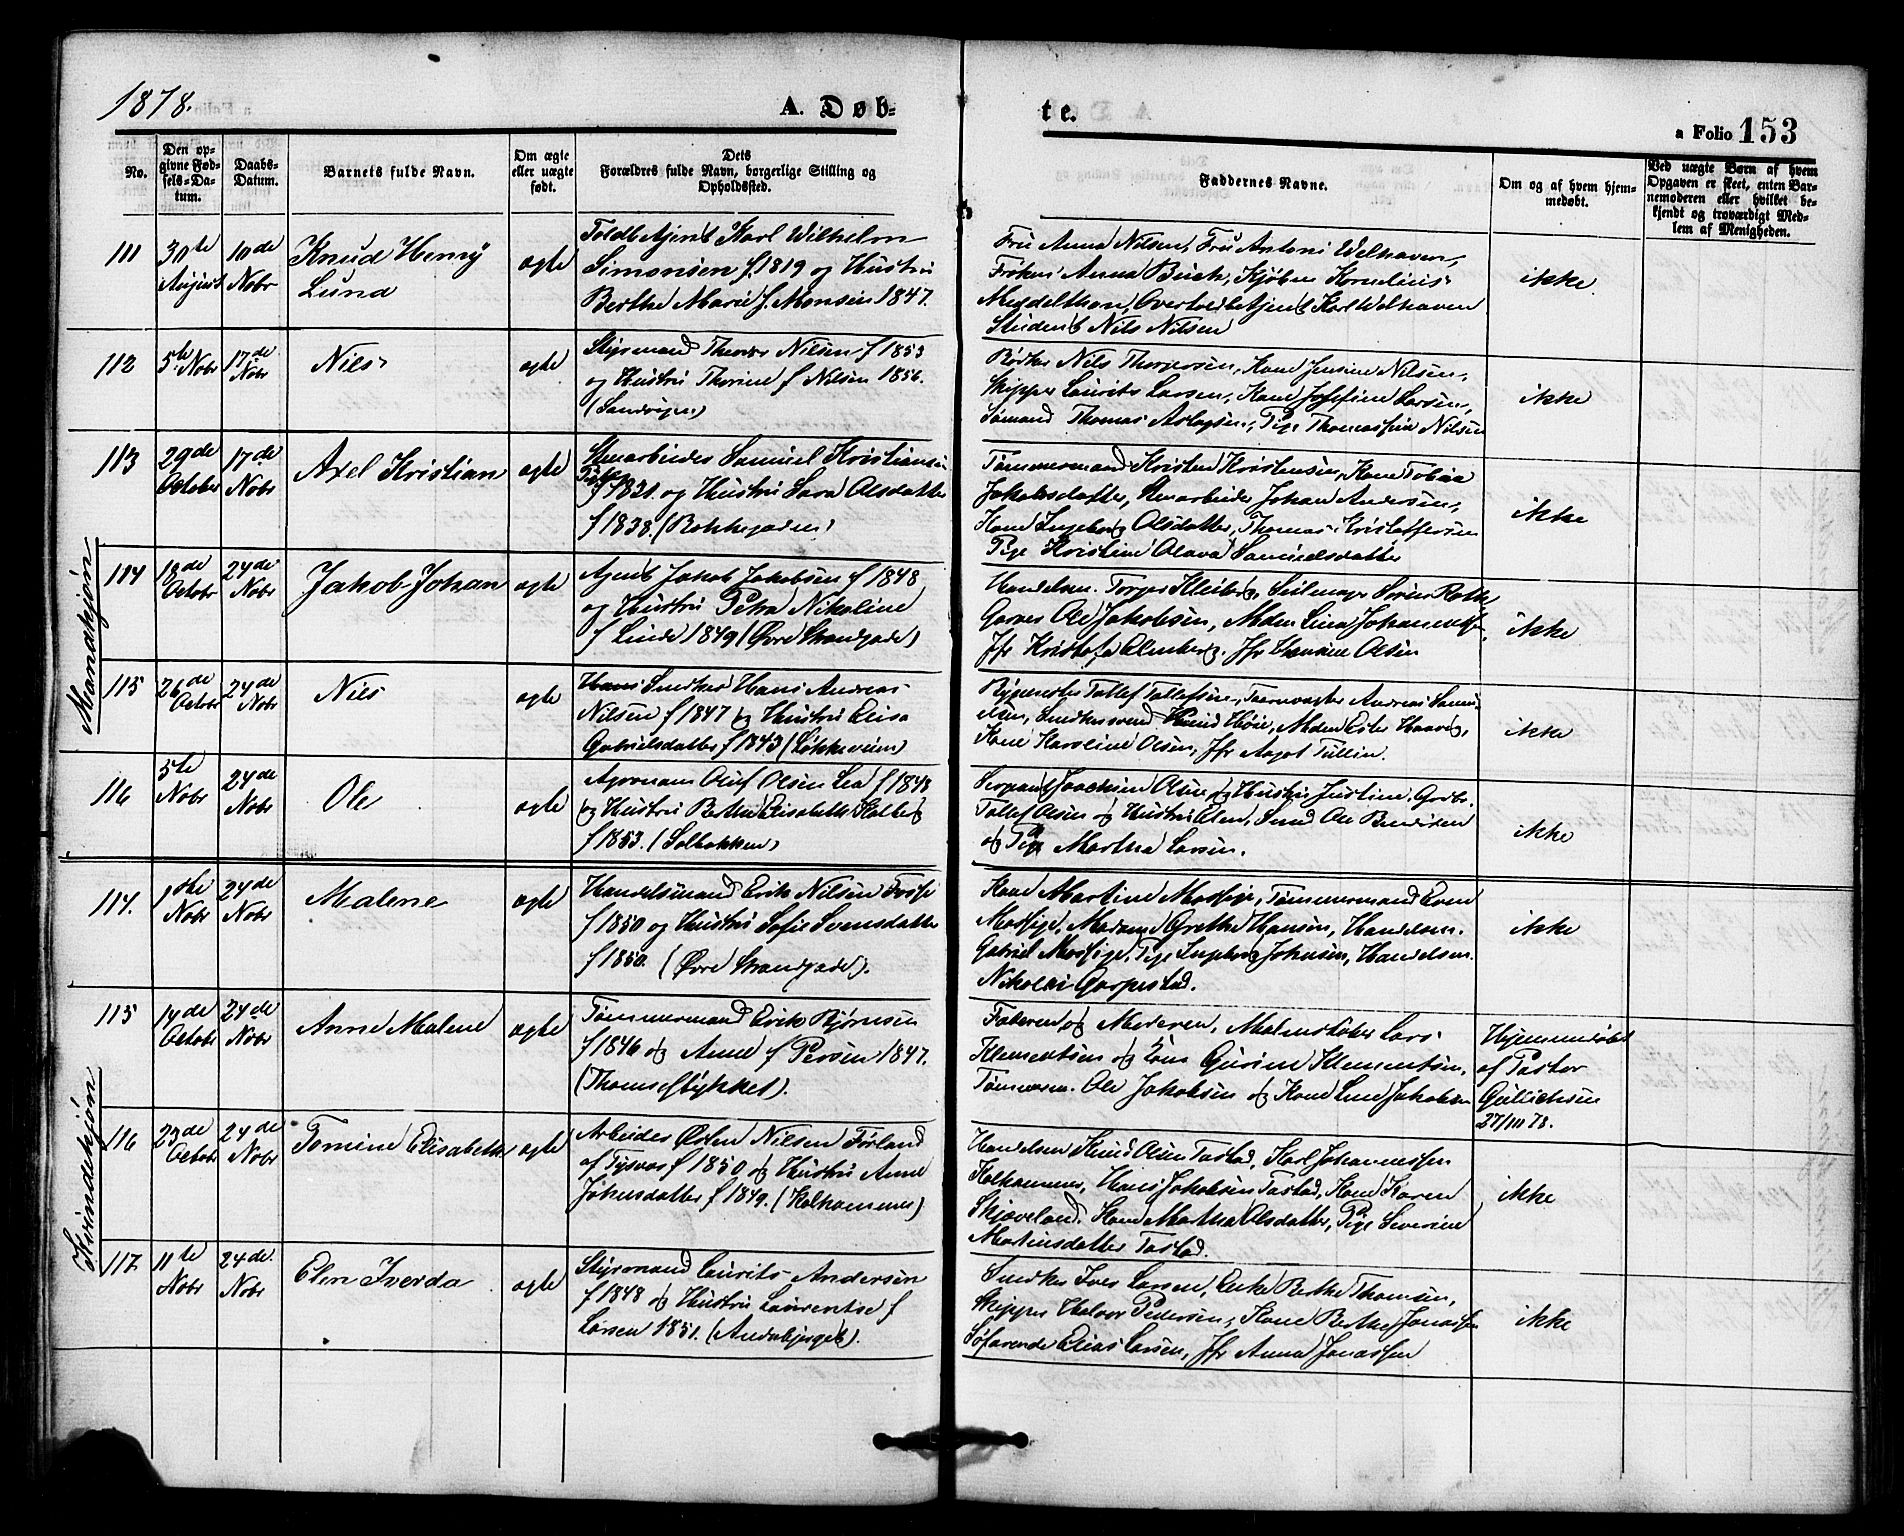 1878.
A. Døb-
te.
a Folio 153
No.
Den op-
givne Fød-
sels-Da-
tum.
Daabs-
Datum.
Barnets fulde Navn.
Om ægte
eller uægte
født.
Dets
Forældres fulde Navn, borgerlige Stilling og
Opholdssted.
Faddernes Navne.
Om og af hvem hjem-
medøbt.
Ved uægte Børn af hvem
Opgaven er skeet, enten Bar-
nemoderen eller hvilket be-
kjendt og troværdigt Med-
lem af Menigheden.
Mandkjøn
111
30te
August
10de
Nobr
Knud Henry
Lund
ægte
Toldbetjent Karl Wilhelm
Simonsen f. 1819 og Hustru
Berthe Marie f. Monsen 1847.
Fru Anna Nilsen, Fru Antoni Welhaven,
Frøken Anna Buch, Kjøbm Kornelius
Middelthon, Overtoldbetjent Karl Welhaven
Student Nils Nilsen
ikke
112
5te Nobr
17de
Nobr
Nils
ægte
Styrmand Thomas Nilsen f 1853
og Hustru Thorine f Nilsen 1856.
(Sandvigen)
Bødker Nils Thorgersen, Kone Jensine Nilsen,
Skipper Laurits Larsen, Kone Josefine Larsen,
Sømand Thomas Aslagsen, Pige Thomassine Nilsen
ikke
113
29de
October
17de
Nobr
Axel Kristian
ægte
Stenarbeider Samuel Kristiansen
f 1821 og Hustru Sara Olsdatter
f 1838. (Bakkegaden)
Tømmermand Kristen Kristensen, Kone Tobia
Jakobsdatter, Stenarbeider Johan Andersen,
Kone Ingeborg Olsdatter, Thomas Kristoffersen
Pige Kristine Olava Samuelsdatter
ikke
114
18de
Octobr
24de
Nobr
Jakob Johan
ægte
Agent Jakob Jakobsen f 1848
og Hustru Petra Nikoline
f Linde 1849 (Øvre Strandgade)
Handelsm. Torger Kleiberg, Seilmager Sørine Roth
Garver Ole Jakobsen, Mdm Lina Johannesen,
Jfr Kristofa Almberg, Jfr Hansine Olsen
ikke
115
26de
Octobr
24de
Nobr
Nils
ægte
Snedker Hans Andreas
Nilsen f 1847 og Hustru Elisa
Gabrielsdatter f 1843 (Løkkeveien)
Rygmester Tollef Tollefsen, Taarnvagter Andreas Samu-
elsen, Snedkersvend Høie, Mdm Ester Haaver,
Kone Karoline Olsen, Jfr Aagot Tullin.
ikke
116
5te
Nobr
24de
Nobr
Ole
ægte
Agronom Oluf Olsen Lea f 1848
og Hustru Berthe Elisabeth Kolberg
f 1853. (Solbakken)
Sergeant Joachim Olsen og Hustru Justine, Grdbr.
Tollef Olsen og Hustru Elen, Smed Ole Bendixen
og Pige Martha Larsen.
ikke
Kvindekjøn
114.
1ste
Nobr
24de
Nobr
Malene
ægte
Handelsmand Erik Nilsen Fosse
f 1850 og Hustru Sofie Svensdatter
f 1850. (Øvre Strandgade).
Kone Martine Mossige, Tømmermand Even
Mossige, Madame Grethe Hansen, Handelsm.
Gabriel Mossige, Pige Ingeborg Johnsen, Handelsm.
Nikolai Garpestad.
ikke
115
14de
Octobr
24de
Nobr
Anne Malene
ægte
Tømmermand Erik Bjørnsen
f 1846 og Anne f Persen 1847.
(Thomsestykket).
Faderen og Moderen, Malmstøber Lars
Klementsen og Kone Gurine Klementsen,
Tømmerm. Ole Jakobsen og Kone Lina Jakobsen
Hjemmedøbt
af Pastor
Gullichsen
27/10 78.
116
23de
Octobr
24de
Nobr
Tomine Elisabeth
ægte
Arbeider Østen Nilsen Førland
af Tysvær f 1850 og Hustru Anne
Johnsdatter f 1849. (Kalhammer)
Handelsm Knud Olsen Tastad, Karl Johannessen
Kalhammer, Hans Jakobsen Tastad, Kone Karen
Skjæveland. Kone Martha Olsdatter, Pige Severine
Martinsdatter Tastad.
ikke
117.
11te
Nobr
24de.
Nobr
Elen Iverda
ægte
Styrmand Laurits Andersen
f 1848 og Hustru Laurentse f
Larsen 1851. (Andabjerget).
Snedker Iver Larsen, Enke Berthe Thomsen,
Skipper Halvor Pedersen, Kone Berthe Jonassen
Søfarende Elias Larsen, Jfr Anna Jonassen
ikke